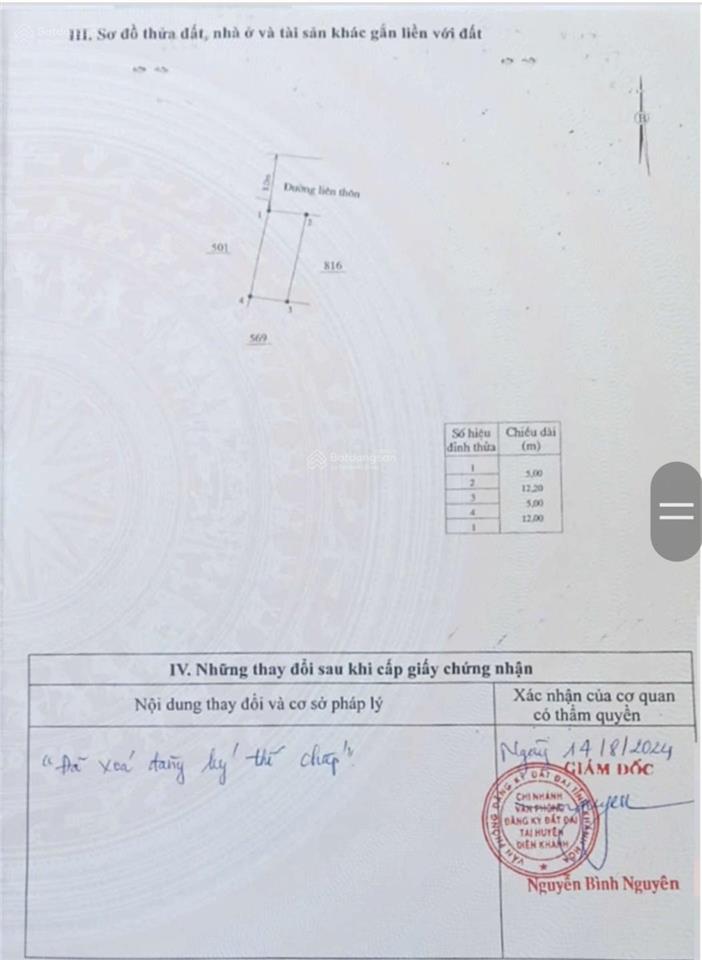 III. Sơ đồ thửa đất, nhà ở và tài sản khác gắn liền với đất
B
Đường liên thôn
1
2
501
816
4
3
569
Số hiệu đỉnh thửa
Chiều dài (m)
1
5,00
2
12,20
3
5,00
4
12,00
1
Batdongsan
IV. Những thay đổi sau khi cấp giấy chứng nhận
Nội dung thay đổi và cơ sở pháp lý
Xác nhận của cơ quan
có thẩm quyền
"Đã xoá đăng ký thế chấp"
Ngày 14/8/2024
GIÁM ĐỐC
VĂN PHÒNG ĐĂNG KÝ ĐẤT ĐAI TỈNH KHÁNH HÒA
CHI NHÁNH
VĂN PHÒNG
ĐĂNG KÝ ĐẤT ĐAI
TẠI HUYỆN
DIÊN KHÁNH
Nguyễn Bình Nguyên